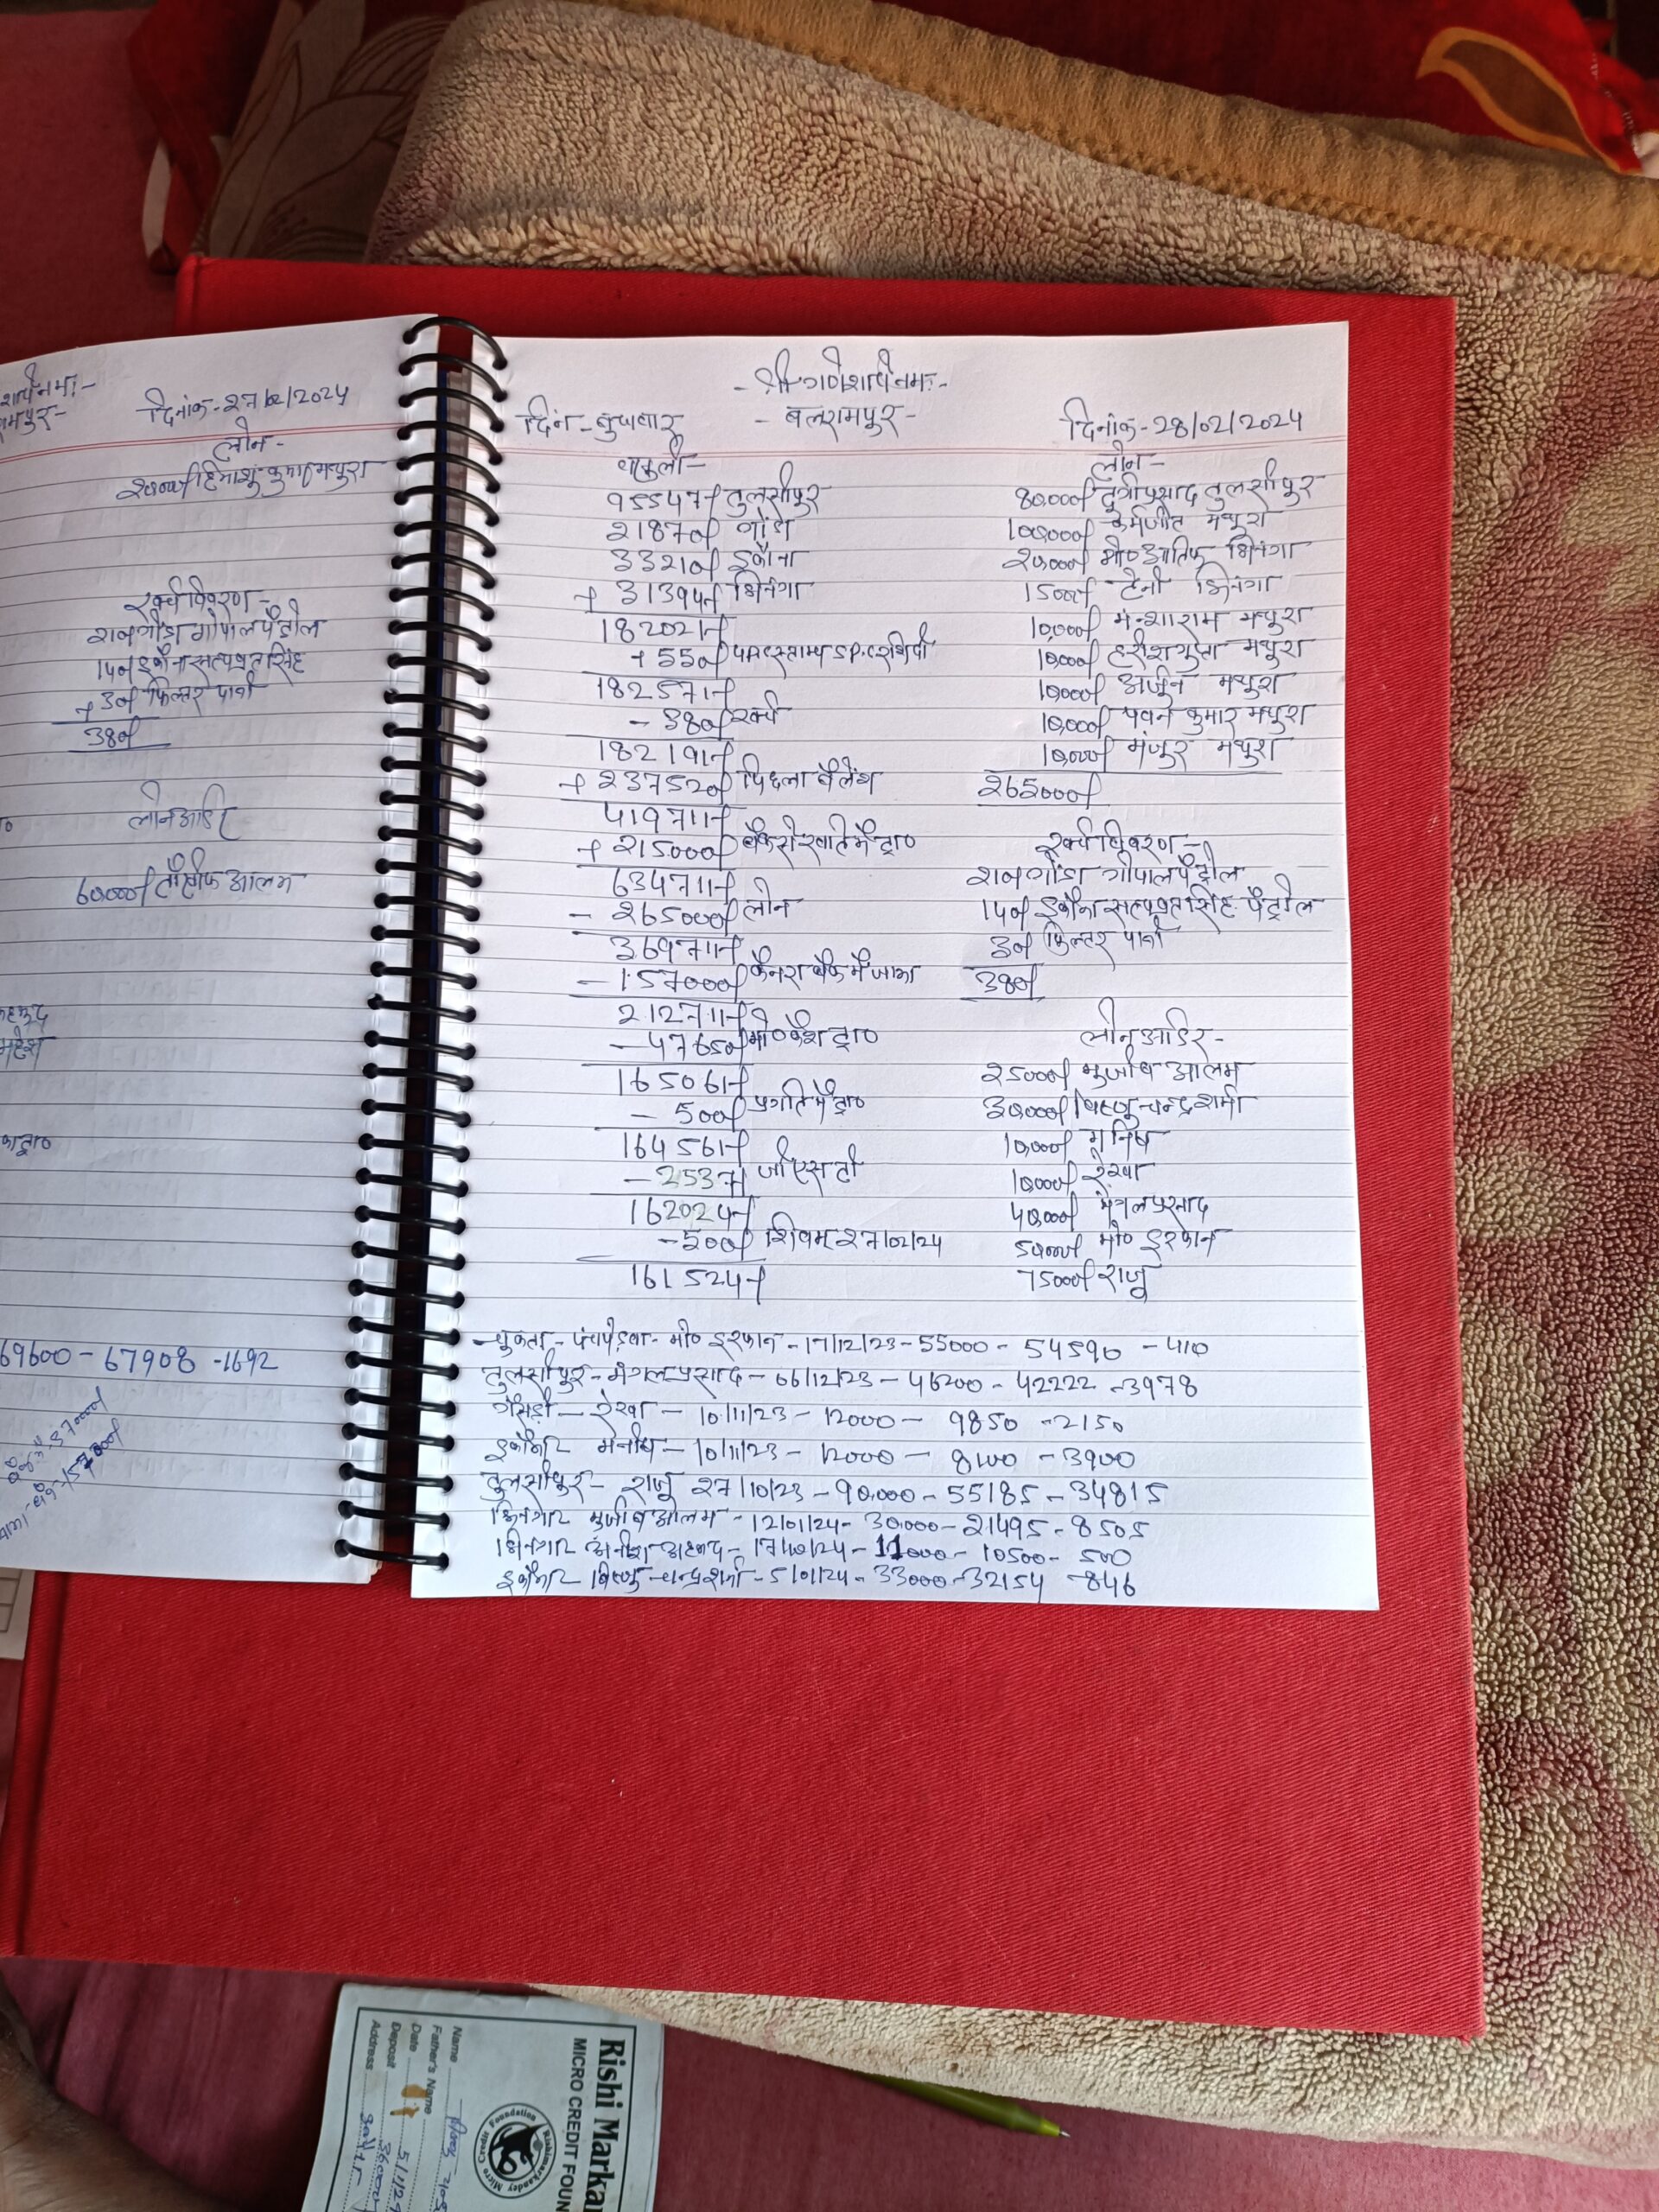 दिनांक-27/02/2024
लोन-
20,000/ हिमांशु कुमार मथुरा
खर्च विवरण-
गोपाल पैट्रोल
+ 30/ फिल्टर पानी
380/
लोन आर्डर
60,000/ तौसीफ आलम
69600 - 67908 -1692
- श्री गणेशाय नमः-
दिन - बुधवार - बलरामपुर- दिनांक-28/02/2024
वसूली-
95547/ तुलसीपुर
21870/ गोंडा
33210/ इकौना
+ 31394/ भिनगा
182021/
+ 550/
182571/
- 380/ खर्च
182191/
+ 237520/ पिछला बैलेंस
419711/
+ 215000/ बैंक से खाते में ट्रा०
634711/
- 265000/ लोन
369711/
- 157000/ केनरा बैंक में जमा
212711/
- 47650/ मो० कैश ट्रा०
165061/
- 500/ प्रगति में ट्रा०
164561/
- 2537/ जी एस टी
162024/
-500/ शिवम 27/02/24
161524/
लोन-
80,000/ दुर्गाप्रसाद तुलसीपुर
100,000/ कर्मजीत मथुरा
20,000/ मो० आतिफ भिनगा
15000/ टेनी भिनगा
10,000/ मंशाराम मथुरा
10,000/ हरीश गुप्ता मथुरा
10,000/ अर्जुन मथुरा
10,000/ पवन कुमार मथुरा
10,000/ मंजूर मथुरा
265000/
खर्च विवरण-
गोंडा गोपाल पैट्रोल
इकौना सत्यव्रत सिंह पैट्रोल
30/ फिल्टर पानी
380/
लोन आर्डर-
25000/ मुजीब आलम
30,000/ विष्णु चन्द्र शर्मा
10,000/ मनिष
10,000/ रेखा
40,000/ मंगल प्रसाद
50,000/ मो० इरफान
75000/ राजू
-चुकता- पंचपेड़वा- मो० इरफान -17/12/23-55000- 54590 -410
तुलसीपुर- मंगल प्रसाद - 06/12/23 - 46200 - 42222 -3978
गैंसड़ी - रेखा - 10/11/23 - 12000 - 9850 -2150
मनीष - 10/11/23 - 12000 - 8100 -3900
तुलसीपुर- राजू 27/10/23 - 90,000 - 55185 -34815
मुजीब आलम -12/01/24- 30,000-21495-8505
11000- 10500- 500
विष्णु चन्द्र शर्मा -5/01/24-33000-32154 -846
Rishi Markan
MICRO CREDIT FOUN
Name
Father's Name
Date
Deposit
Address